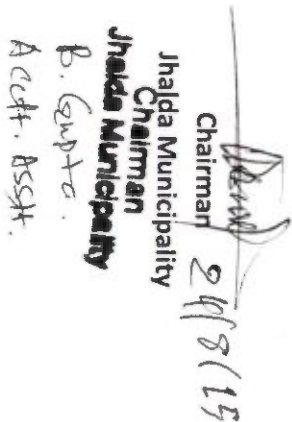 24/8/15
Chairman
Jhalda Municipality
Chairman
Jhalda Municipality
B. Gupta.
Acctt. Asstt.